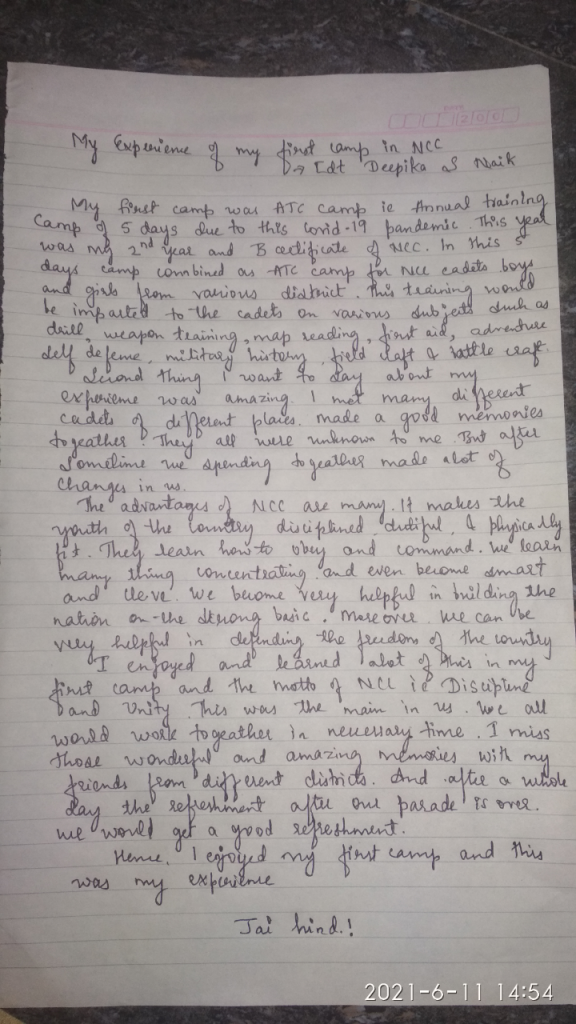 My Experience of my first camp in NCC
→ Cdt Deepika S Naik
My first camp was ATC camp ie Annual training
Camp of 5 days due to this Covid-19 pandemic. This year
was my 2nd year and B certificate of NCC. In this 5
days camp combined as ATC camp for NCC cadets boys
and girls from various district. This training would
be imparted to the cadets on various subjects such as
drill, weapon training, map reading, first aid, adventure
self defence, military history, field craft & battle craft.
Second thing I want to say about my
experience was amazing. I met many different
cadets of different places. made a good memories
togeather. They all were unknown to me. But after
sometime we spending togeather made alot of
changes in us.
The advantages of NCC are many. It makes the
youth of the country disciplined, dutiful, & physically
fit. They learn how to obey and command. We learn
many thing concentrating and even become smart
and cleve. We become very helpful in building the
nation on the strong basic. Moreover we can be
very helpful in defending the freedom of the country
I enjoyed and learned alot of this in my
first camp and the motto of NCC ie Discipline
and Unity. This was the main in us. We all
would work togeather in necessary time. I miss
those wonderful and amazing memories with my
friends from different districts. And after a whole
day the refreshment after our parade is over.
we would get a good refreshment.
Hence, I ejoyed my first camp and this
was my experience
Jai hind.!
2021-6-11 14:54